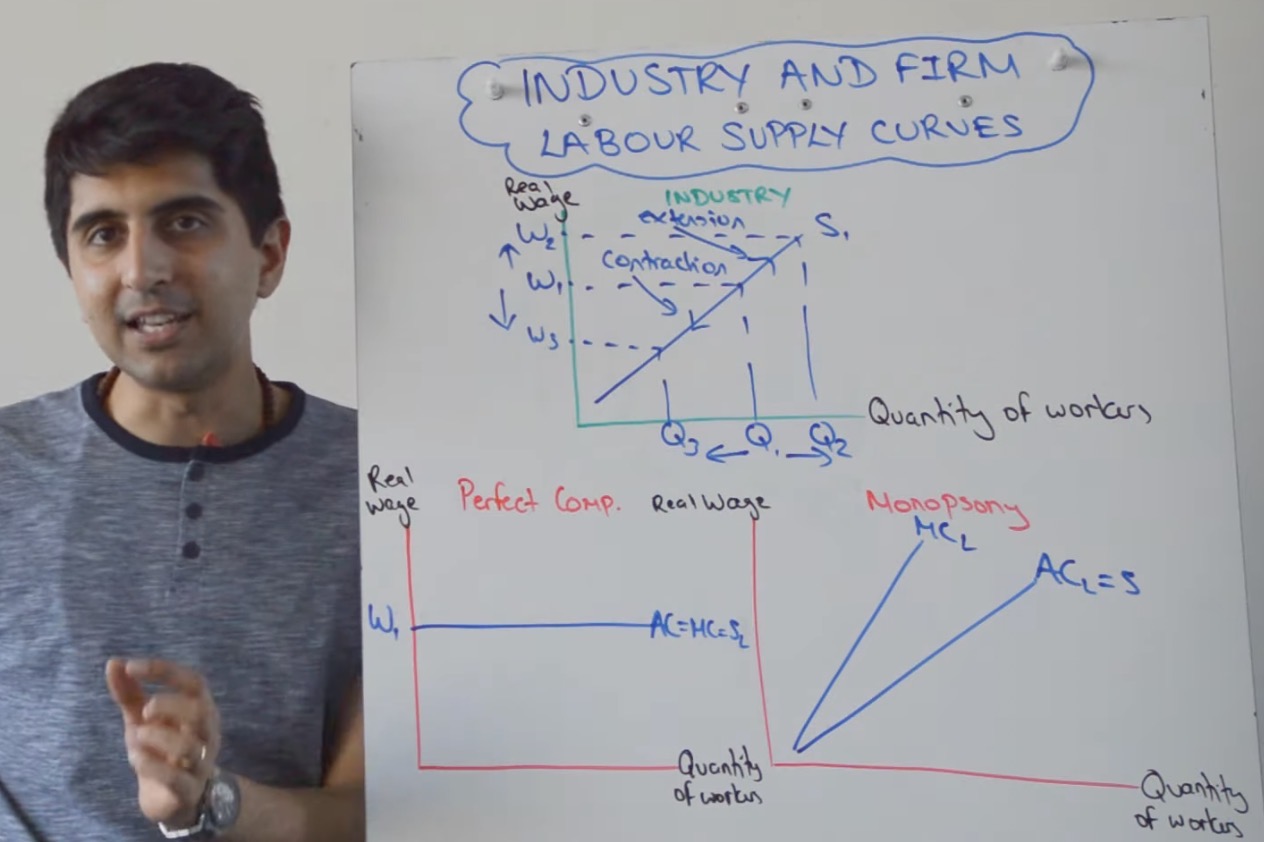 INDUSTRY AND FIRM
LABOUR SUPPLY CURVES
Real
Wage
INDUSTRY
extension
W₂
S₁
contraction
W₁
W₃
Quantity of workers
Q₃
Q₁
Q₂
Real
wage
Perfect Comp.
W₁
AC=MC=S_L
Quantity
of workers
Real Wage
Monopsony
MC_L
AC_L=S
Quantity
of workers